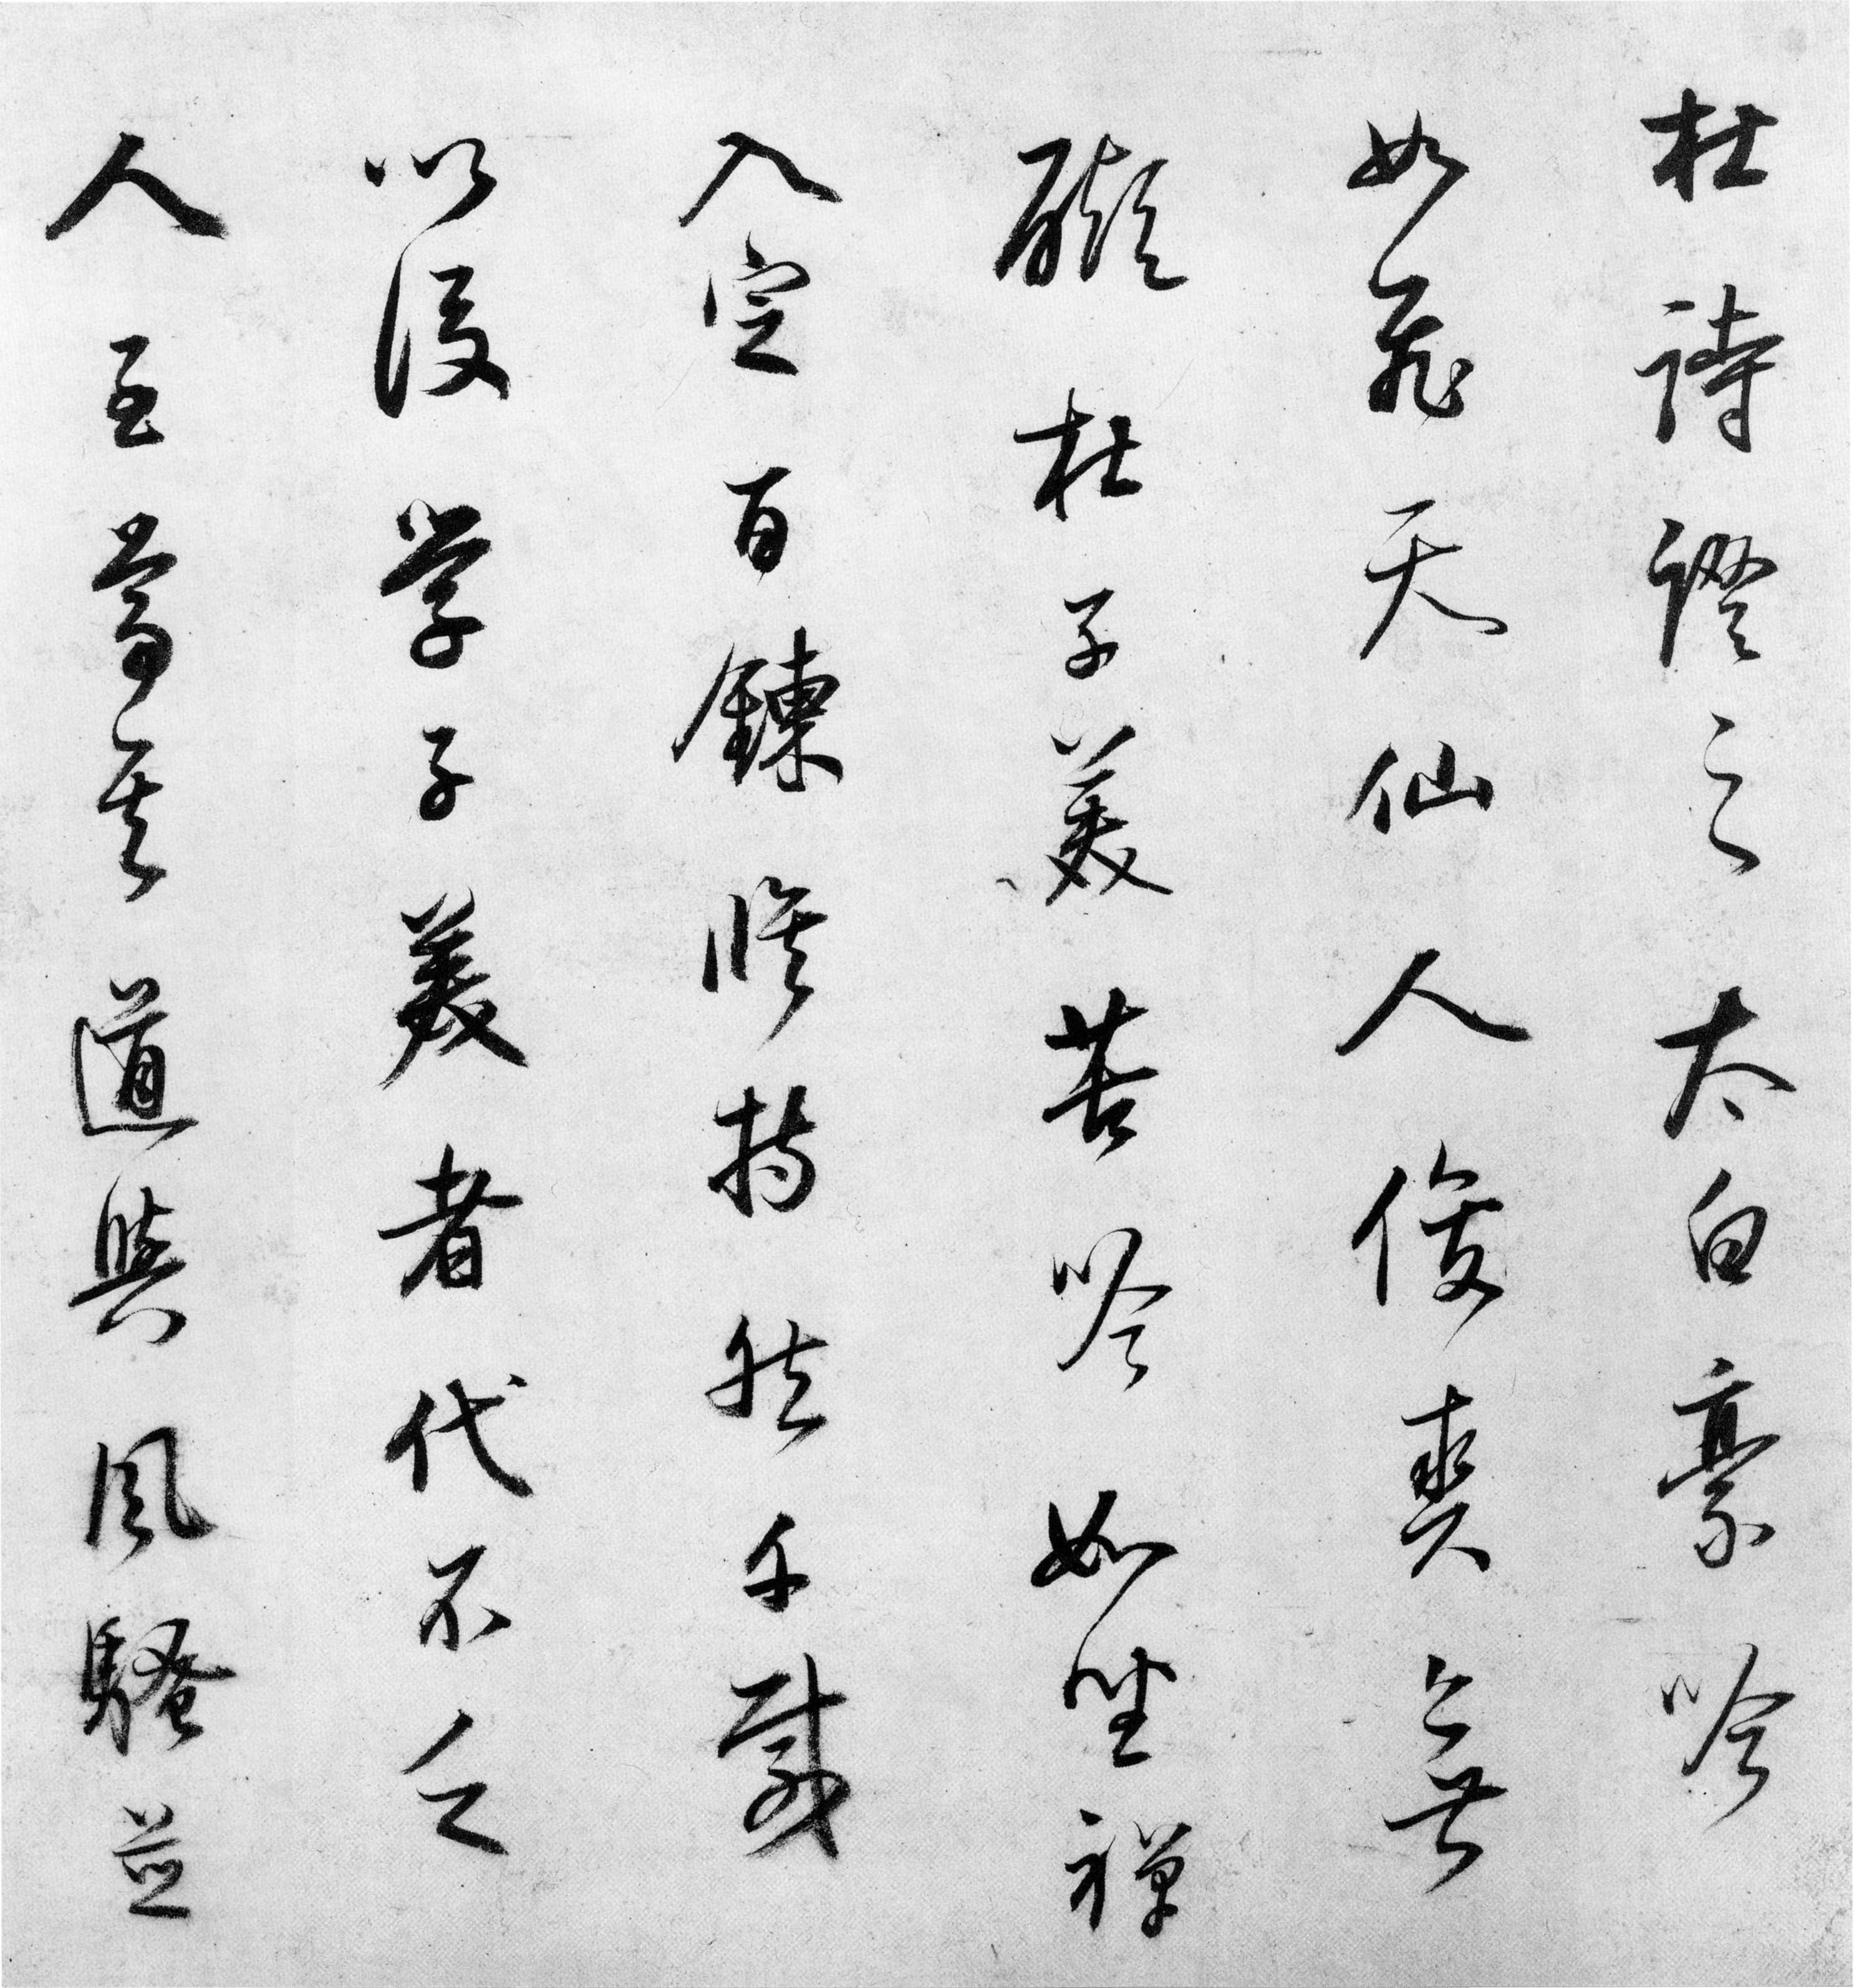 杜詩證之太白豪吟
如飛天仙人俊爽無
礙杜子美苦吟如坐禪
入定百鍊修持然千載
以後學子美者代不乏
人至尊其道與風騷並